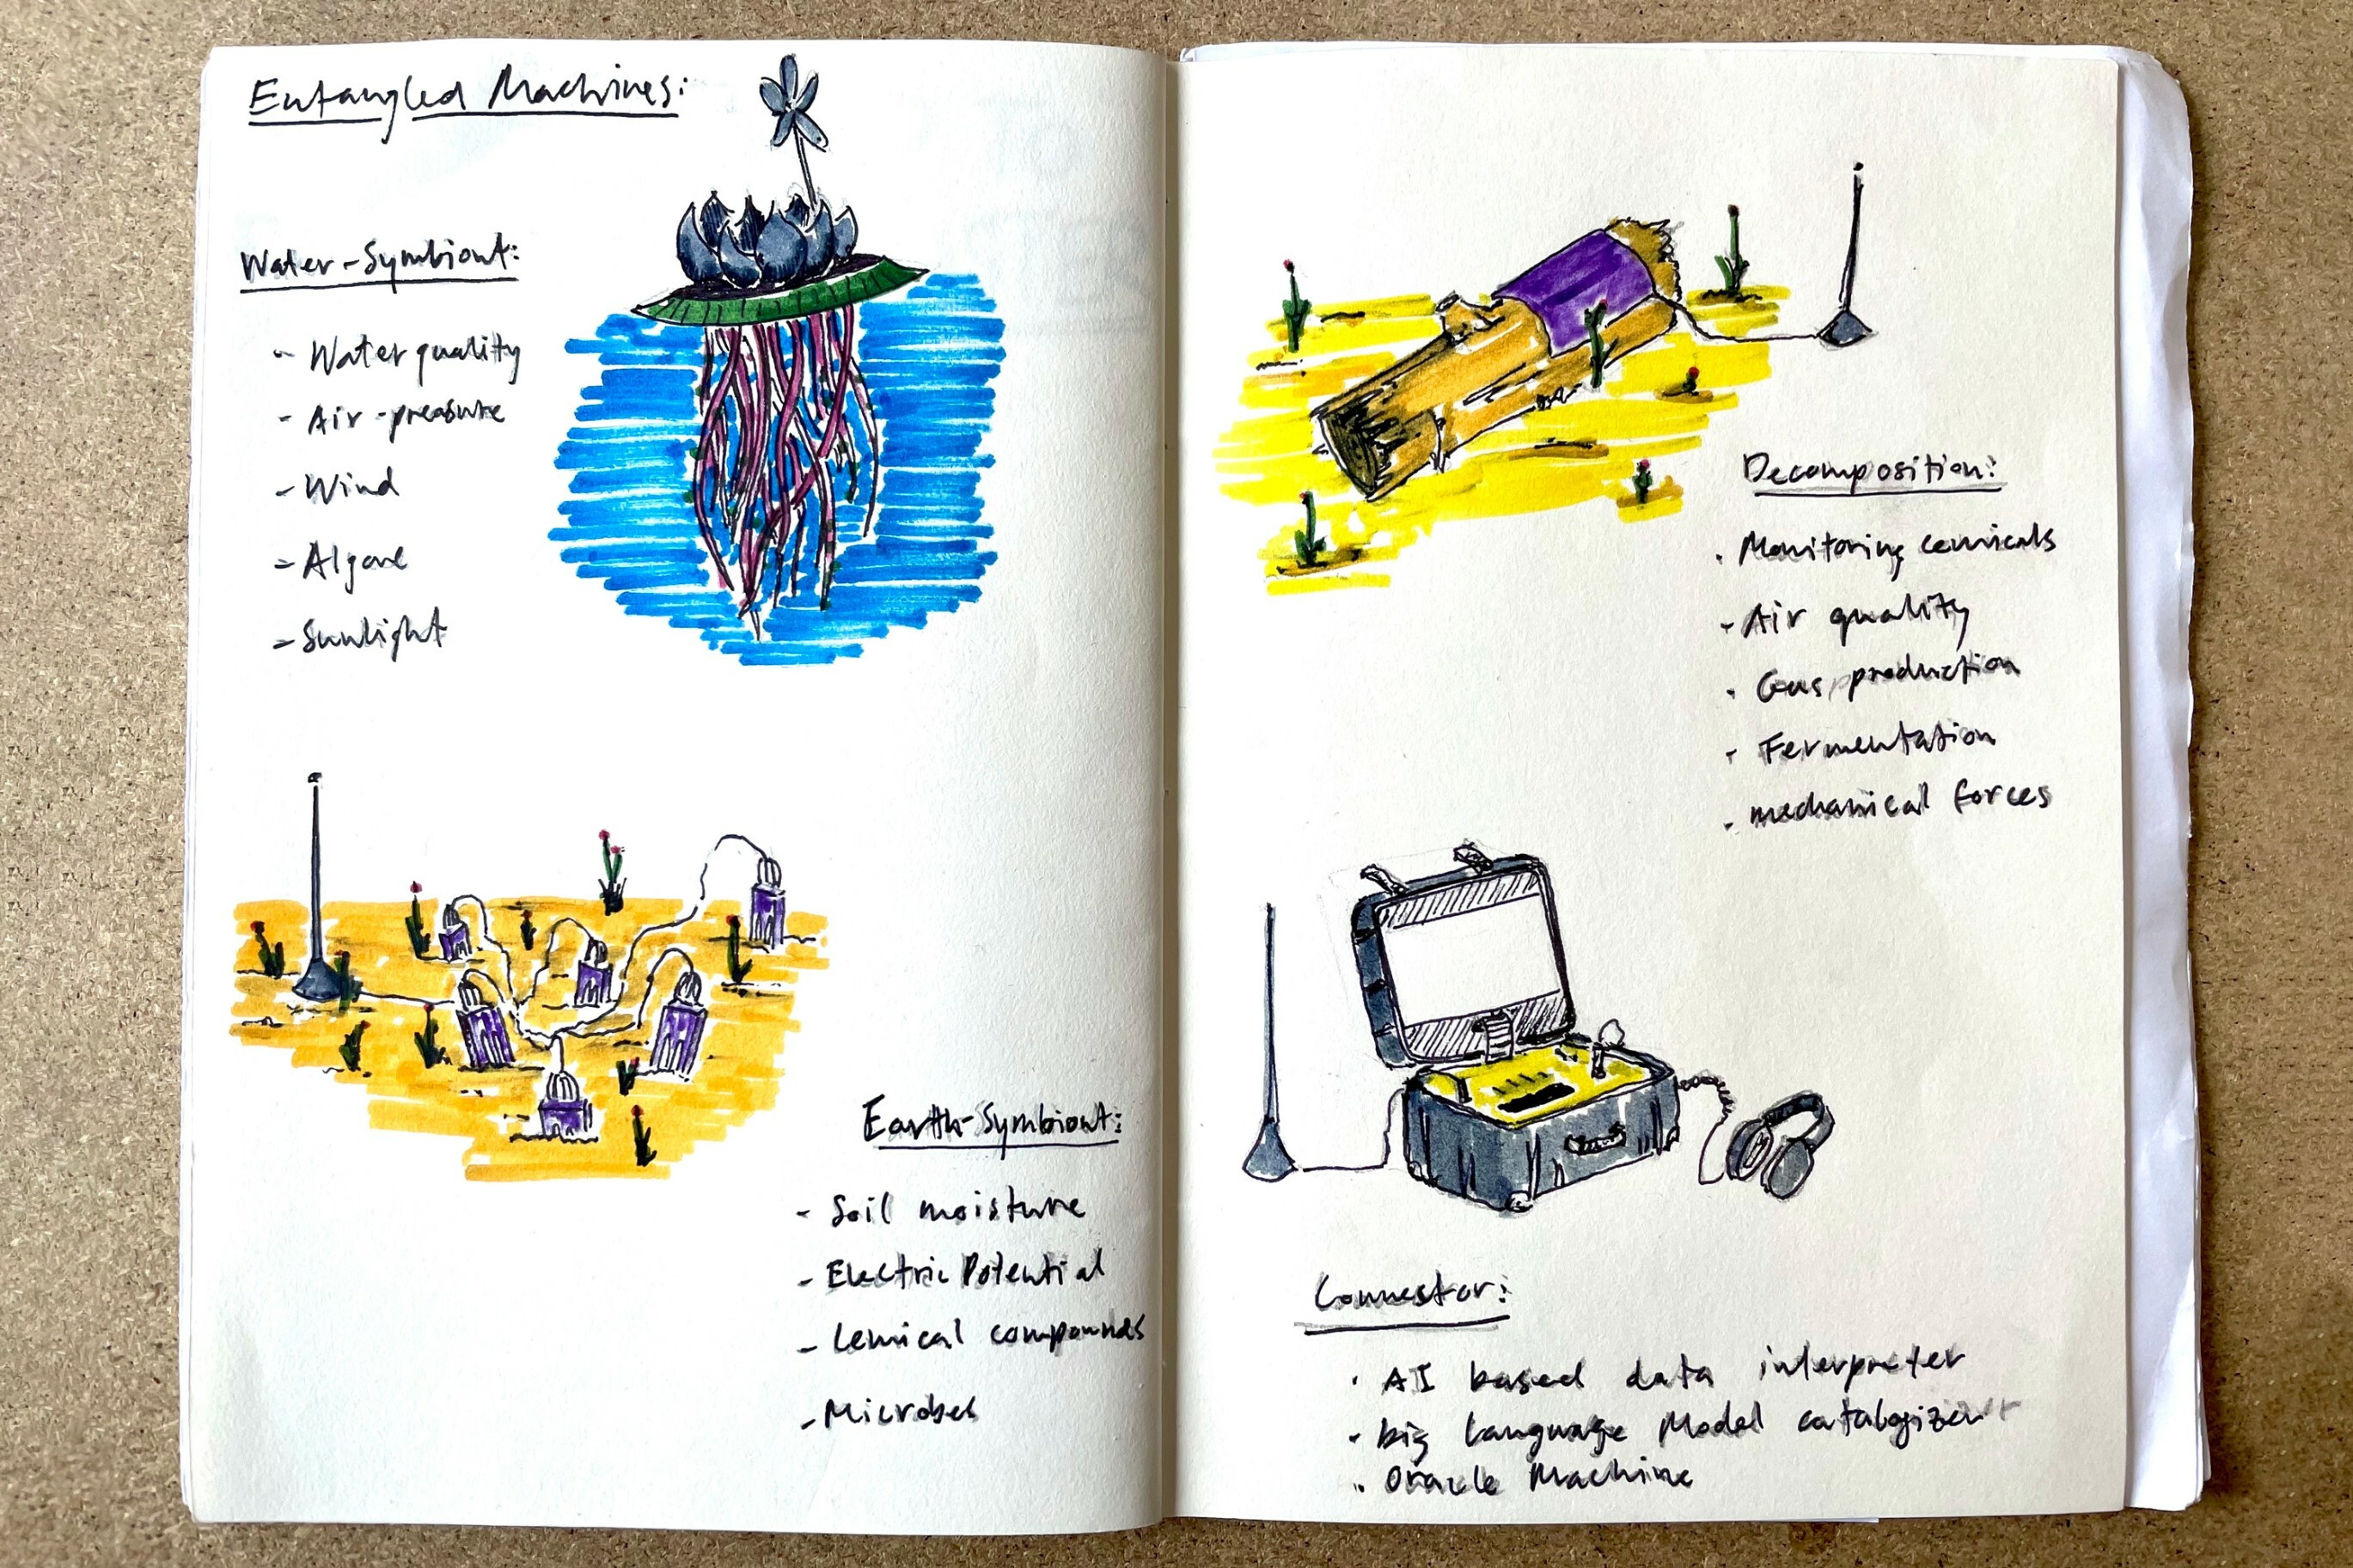 Entangled Machines:
Water-Symbiont:
- Water quality
- Air-preasure
- Wind
- Algae
- Sunlight
Earth-Symbiont:
- Soil moisture
- Electric Potential
- Cemical compounds
- Microbes
Decomposition:
· Monitoring cemicals
- Air quality
· Gas production
- Fermentation
- mechanical forces
Connector:
· AI based data interpreter
- big Language Model catalogizer
· Oracle Machine